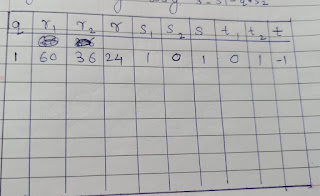 s = s1 - q * s2
q r1 r2 r s1 s2 s t1 t2 t
1 60 36 24 1 0 1 0 1 -1